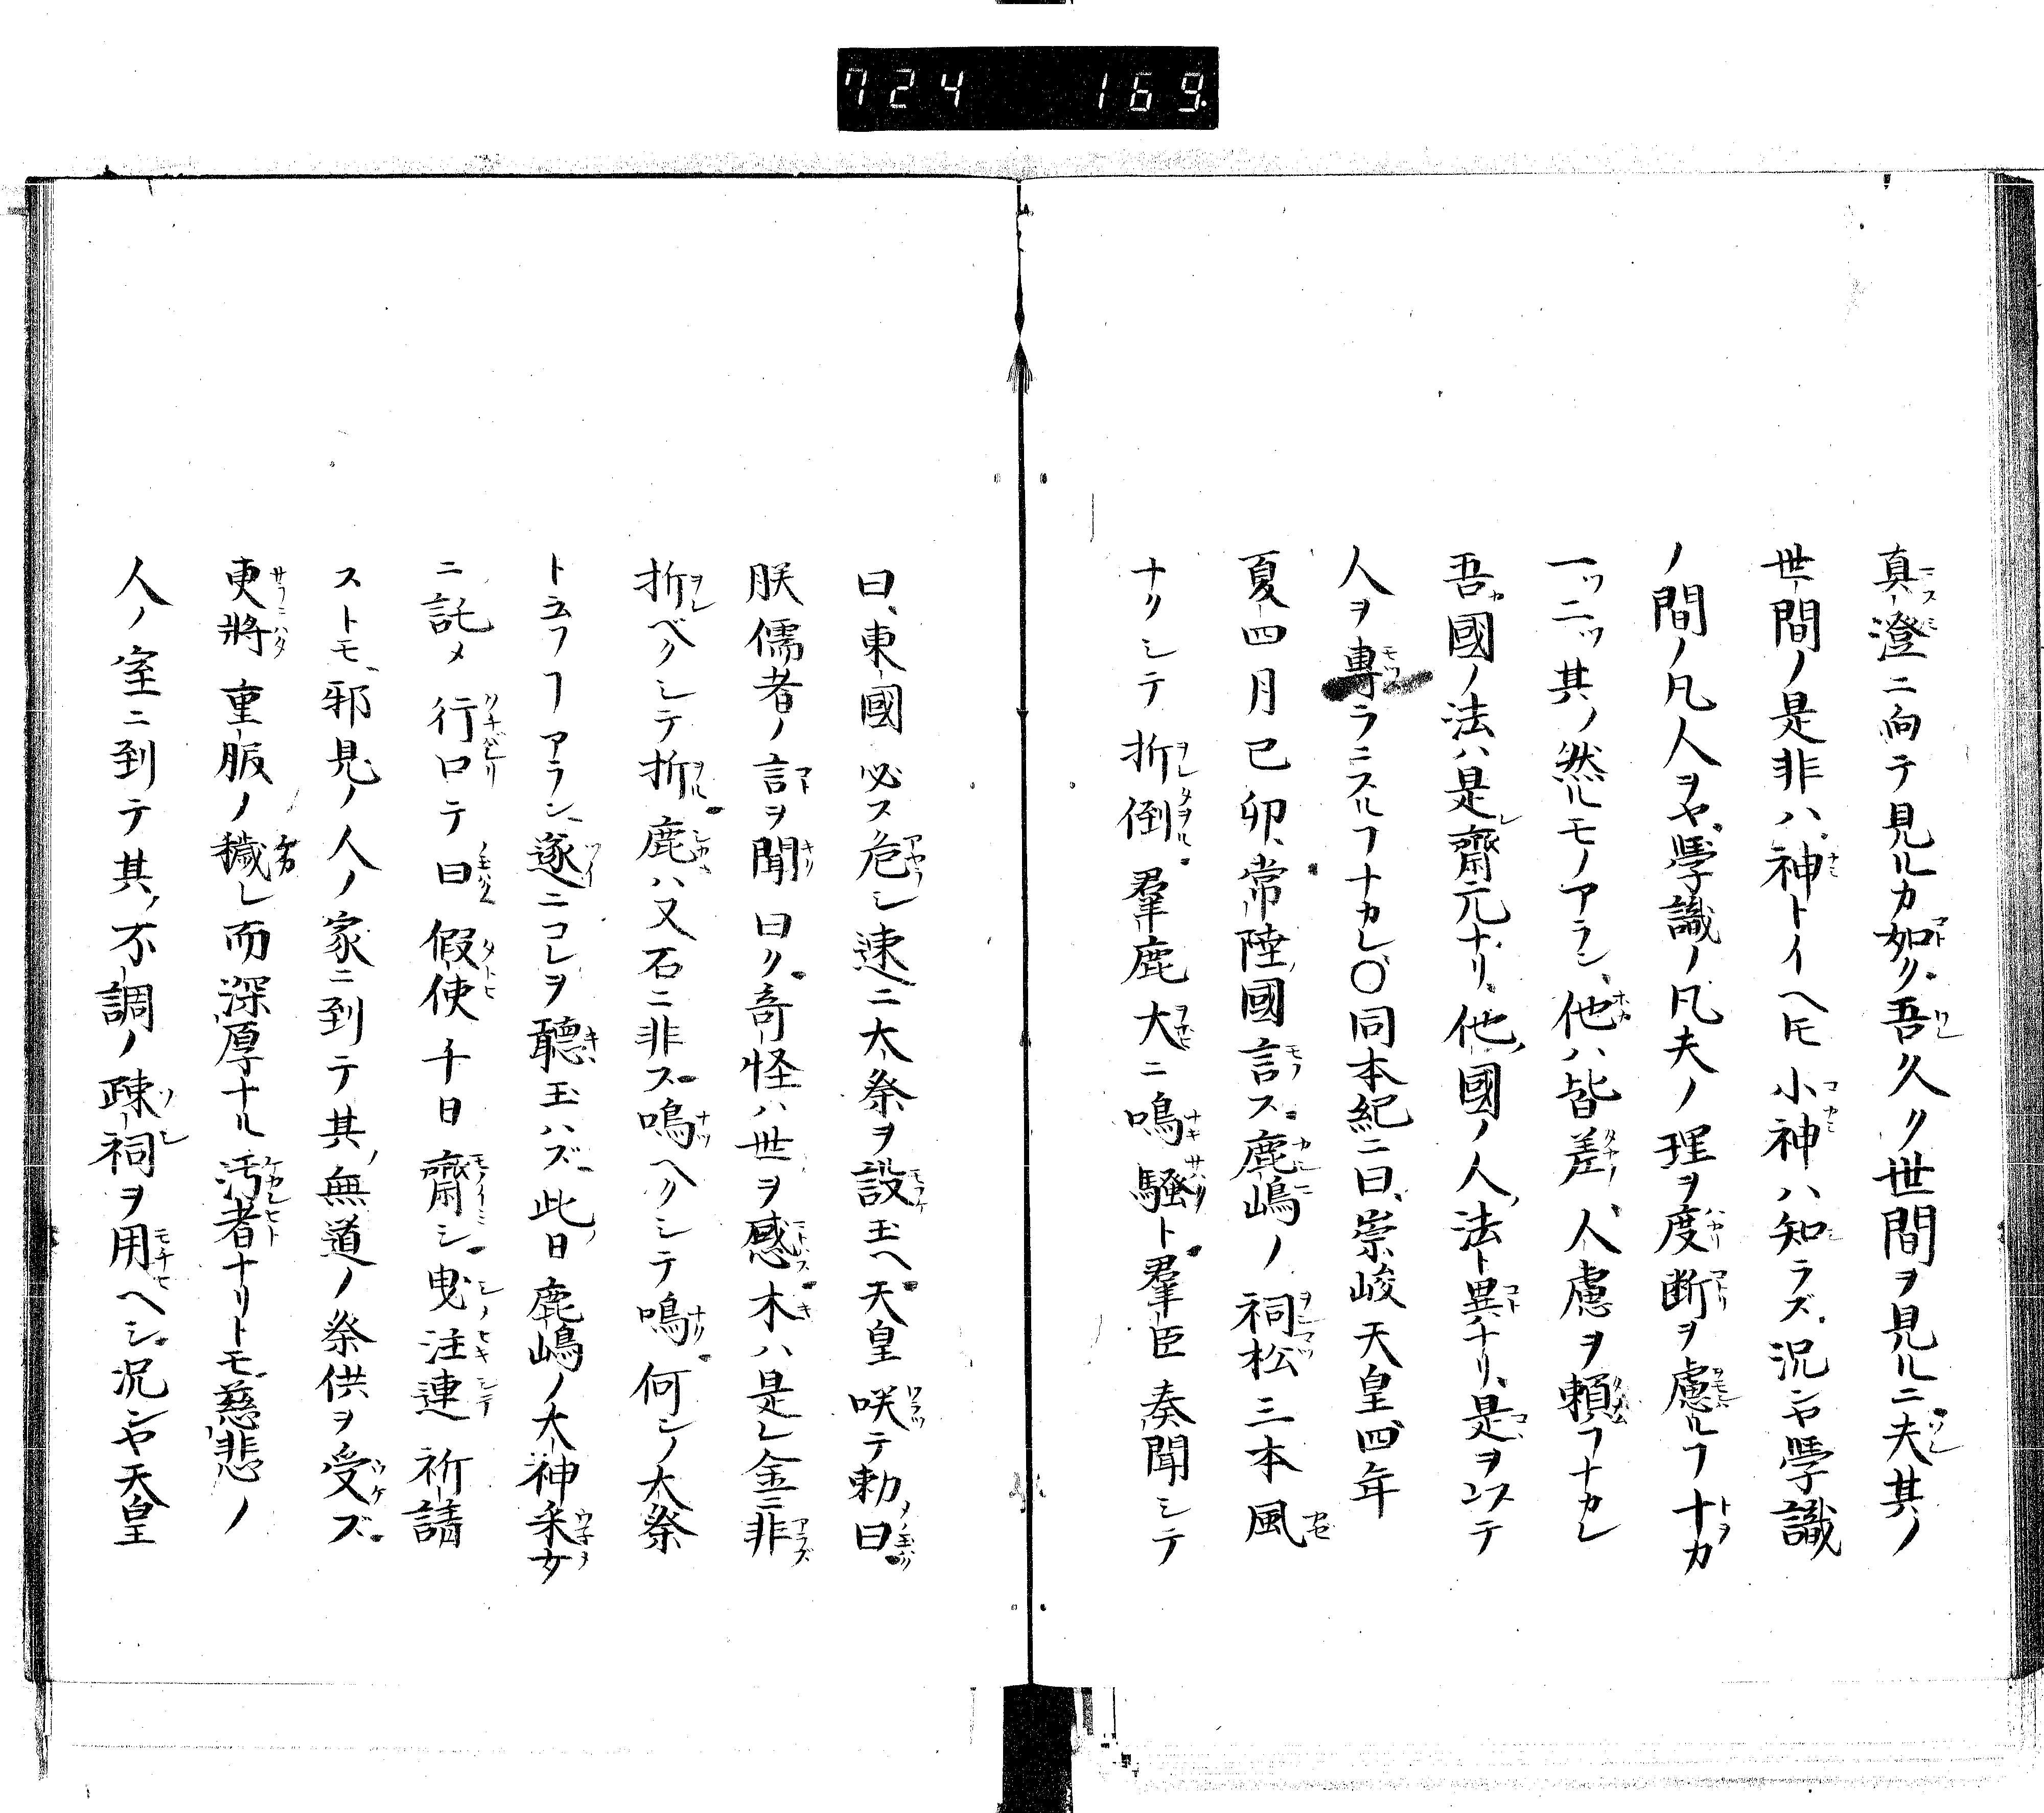 724 169.
真澄ニ向テ見ルカ如ク吾久ク世間ヲ見ルニ夫其ノ
世間ノ是非ハ神トイヘ𪜈小神ハ知ラズ況ンヤ學識
ノ間ノ凡人ヲヤ學識ノ凡夫ノ理ヲ度断ヲ慮ルヿ十カ
一ツ二ツ其ノ然ルモノアラン他ハ皆差人慮ヲ頼ヿナカレ
吾國ノ法ハ是齋元ナリ他國ノ人法ト異ナリ是ヲステ
人ヲ専ラニスルヿナカレ〇同本紀ニ曰崇峻天皇四年
夏四月已卯常陸國言ス鹿嶋ノ祠松三本風
ナクシテ折倒羣鹿大ニ鳴騒ト羣臣奏聞シテ
曰東國必ス危シ速ニ大祭ヲ設玉ヘ天皇咲テ勅曰
朕儒者ノ言ヲ聞曰ク竒怪ハ世ヲ感木ハ是レ金ニ非
折ベクシテ折鹿ハ又石ニ非ス鳴ヘクシテ鳴何ンノ大祭
トムフヿアラン遂ニコレヲ聽玉ハズ此日鹿嶋ノ大神釆女
ニ託メ行口テ曰假使千日齋シ曳注連祈請
ストモ邪見ノ人ノ家ニ到テ其無道ノ祭供ヲ受ズ
更將重服ノ穢レ而深厚ナル汚者ナリトモ慈悲ノ
人ノ室ニ到テ其不調ノ疎祠ヲ用ヘシ況ンヤ天皇